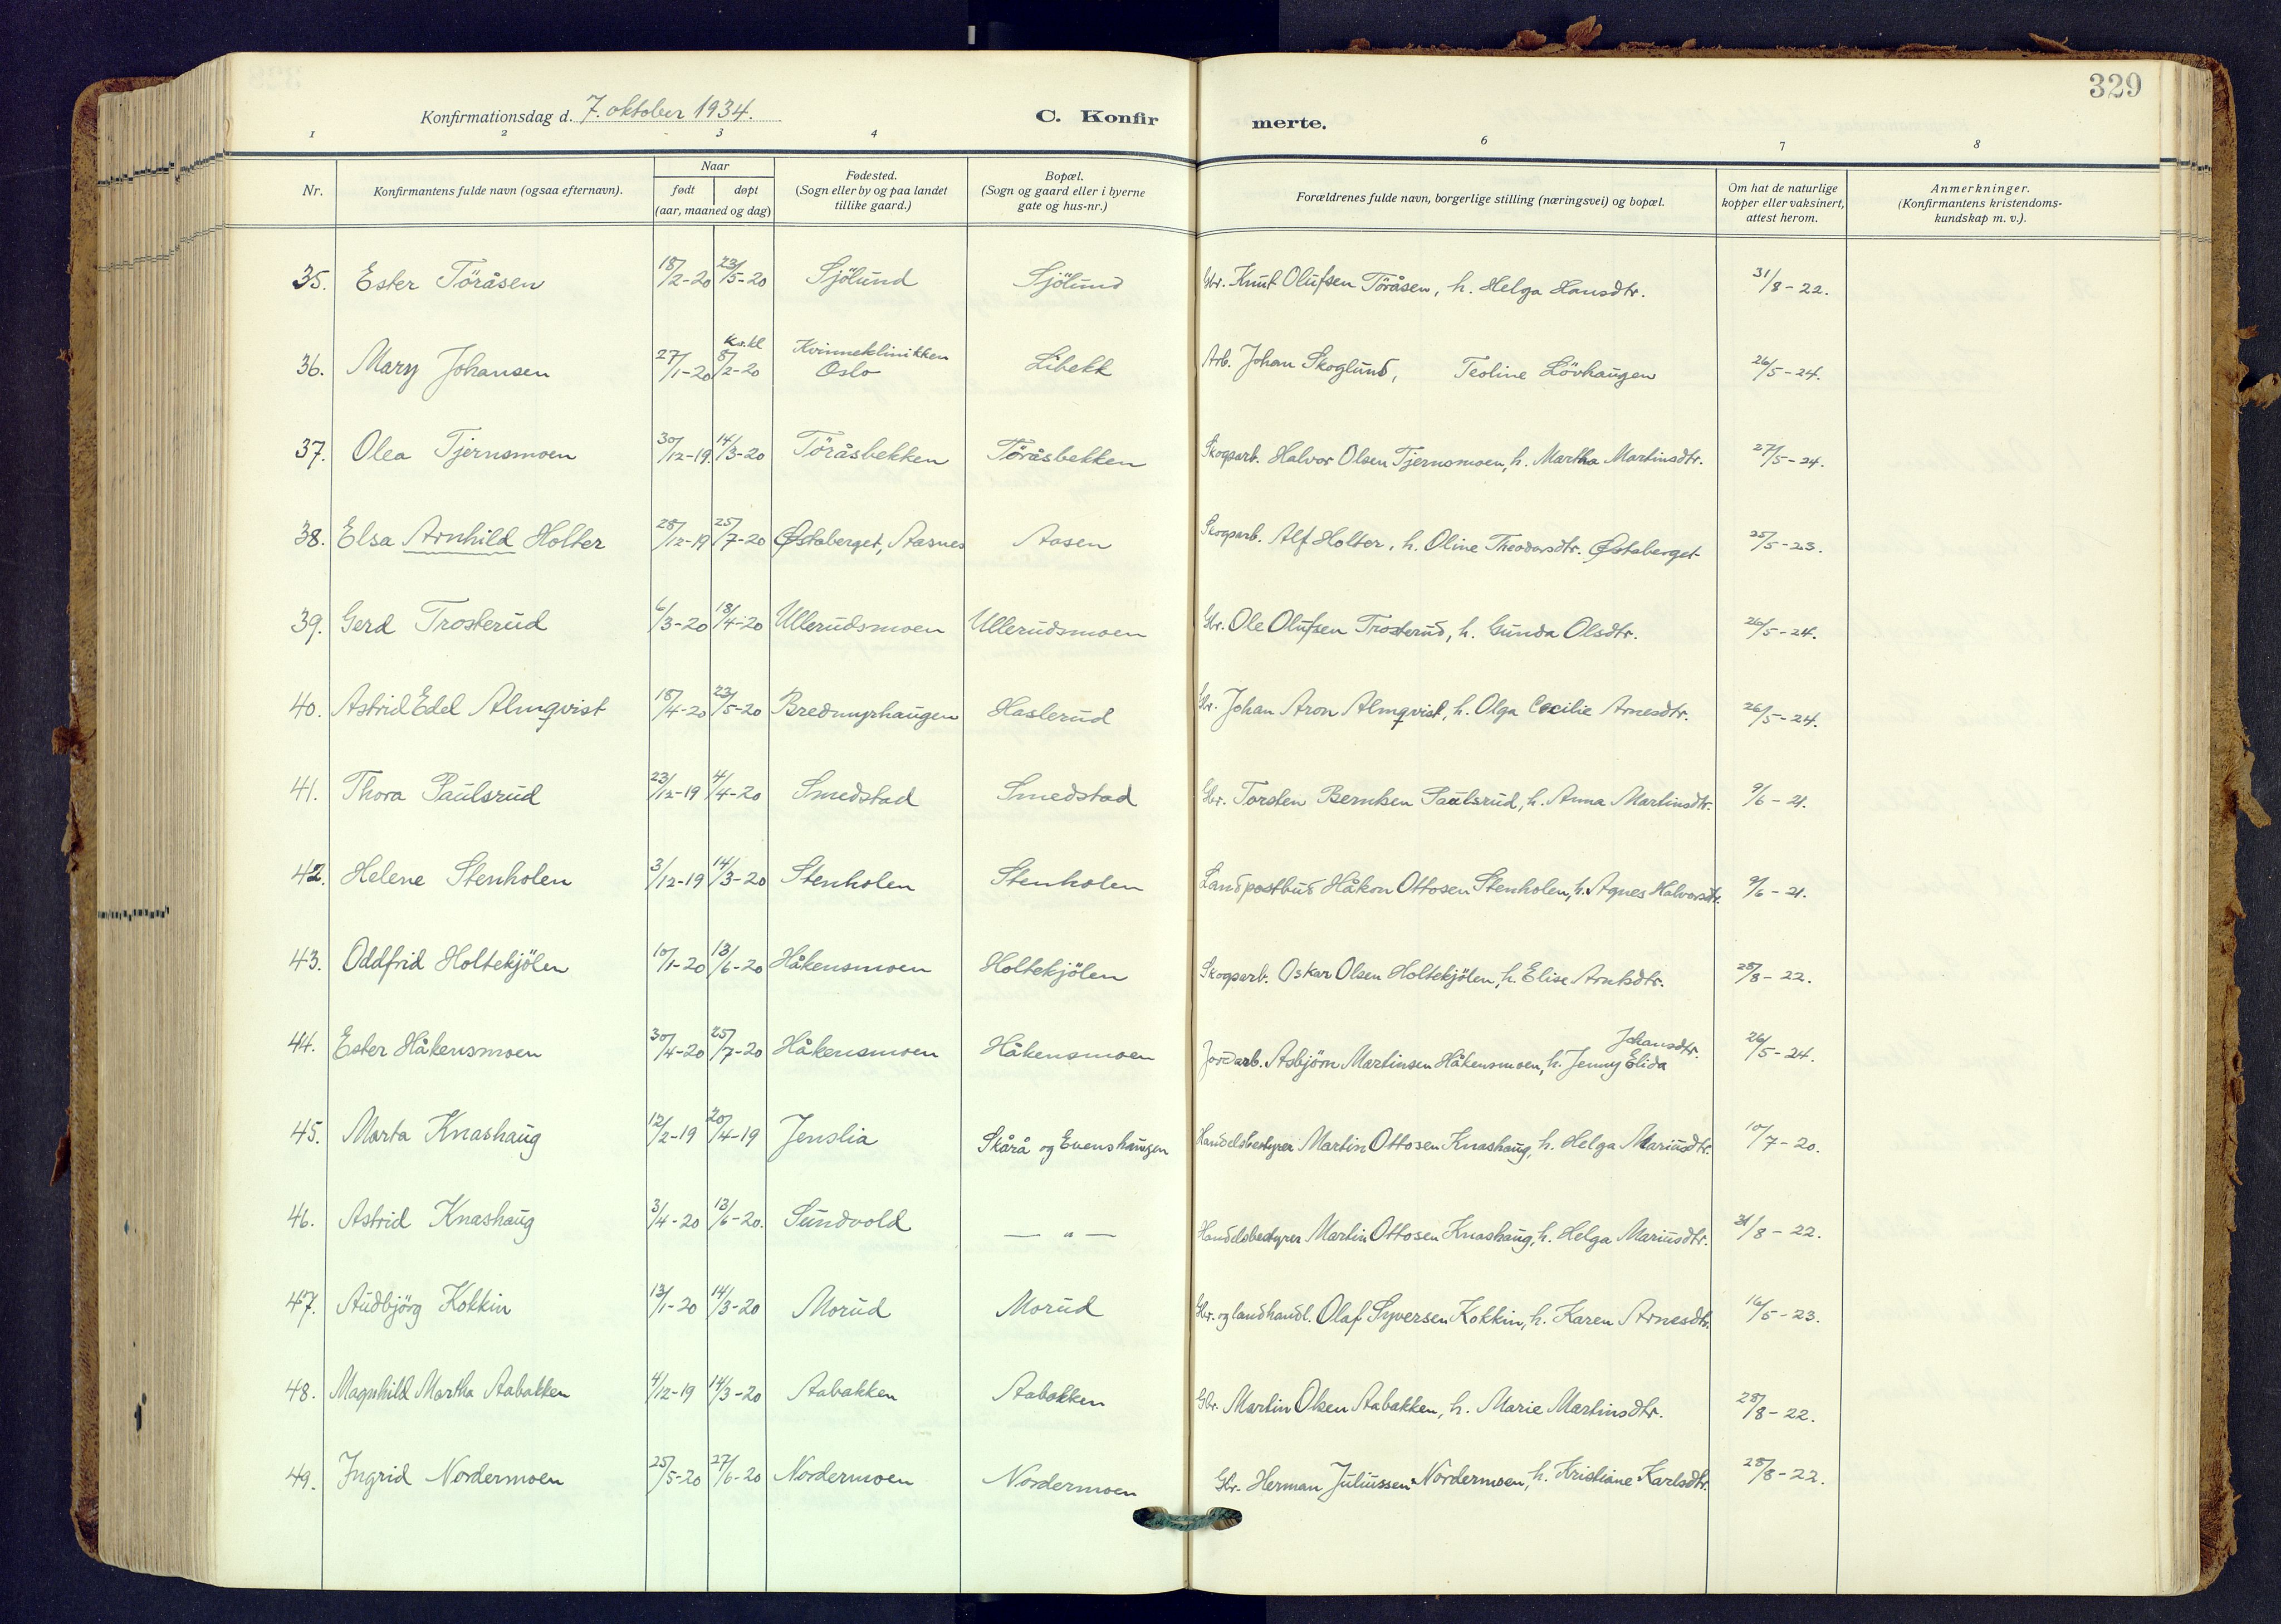 329
Konfirmationsdag d. 7. oktober 1934.
C. Konfir
merte.
1 2 3 4 6 7 8
Nr.
Konfirmantens fulde navn (ogsaa efternavn).
Naar
født døpt
(aar, maaned og dag)
Fødested.
(Sogn eller by og paa landet
tillike gaard.)
Bopæl.
(Sogn og gaard eller i byerne
gate og hus-nr.)
Forældrenes fulde navn, borgerlige stilling (næringsvei) og bopæl.
Om hat de naturlige
kopper eller vaksinert,
attest herom.
Anmerkninger.
(Konfirmantens kristendoms-
kundskap m. v.).
35. Ester Töråsen 18/2-20 23/5-20 Sjölund Sjölund Gbr. Knut Olufsen Töråsen, h. Helga Hansdtr. 31/8-22.
36. Mary Johansen 27/1-20 Kv.kl 8/2-20 Kvinneklinikken Oslo Libekk Arb. Johan Skoglund, Teoline Lövhaugen 26/5-24.
37. Olea Tjernsmoen 30/12-19. 14/3-20 Töråsbekken Töråsbekken Skogsarb. Halvor Olsen Tjernsmoen, h. Martha Martinsdtr. 27/5-24.
38. Elsa Arnhild Holter 28/12-19 25/7-20 Østaberget, Aasnes Aasen Skogsarb. Alf Holter, h. Oline Theodorsdtr. Østaberget 25/5-23.
39. Gerd Trosterud 6/3-20 18/4-20 Ullerudsmoen Ullerudsmoen Gbr. Ole Olufsen Trosterud, h. Gunda Olsdtr. 26/5-24.
40. Astrid Edel Almqvist 18/4-20 23/5-20 Bredmyrhaugen Haslerud Gbr. Johan Aron Almqvist, h. Olga Cecilie Arnesdtr. 26/5-24.
41. Thora Paulsrud 23/12-19 4/4-20 Smedstad Smedstad Gbr. Torsten Berntsen Paulsrud, h. Anna Martinsdtr. 9/6-21.
42. Helene Stenholen 3/12-19 14/3-20 Stenholen Stenholen Landpostbud Håkon Ottosen Stenholen, h. Agnes Halvorsdtr. 9/6-21.
43. Oddfrid Holtekjölen 10/1-20 13/6-20 Håkensmoen Holtekjölen Skogsarb. Oskar Olsen Holtekjölen, h. Elise Arntsdtr. 28/8-22.
44. Ester Håkensmoen 30/4-20 25/7-20 Håkensmoen Håkensmoen Jordarb. Asbjörn Martinsen Håkensmoen, h. Jenny Elida Johansdtr. 26/5-24.
45. Marta Knashaug 12/2-19 20/4-19 Jenslia Skårå og Evenshaugen Handelsbestyrer Martin Ottosen Knashaug, h. Helga Mariusdtr. 10/7-20.
46. Astrid Knashaug 3/4-20 13/6-20. Sundvold — " — Handelsbestyrer Martin Ottosen Knashaug, h. Helga Mariusdtr. 31/8-22.
47. Audbjörg Kokkin 13/1-20 14/3-20 Morud Morud Gbr. og landhandl. Olaf Syversen Kokkin, h. Karen Arnesdtr. 16/5-23.
48. Magnhild Martha Aabakken 4/12-19 14/3-20 Aabakken Aabakken Gbr. Martin Olsen Aabakken, h. Marie Martinsdtr. 28/8-22.
49. Ingrid Nordermoen 25/5-20 27/6-20 Nordermoen Nordermoen Gbr. Herman Juliussen Nordermoen, h. Kristiane Karlsdtr. 28/8-22.